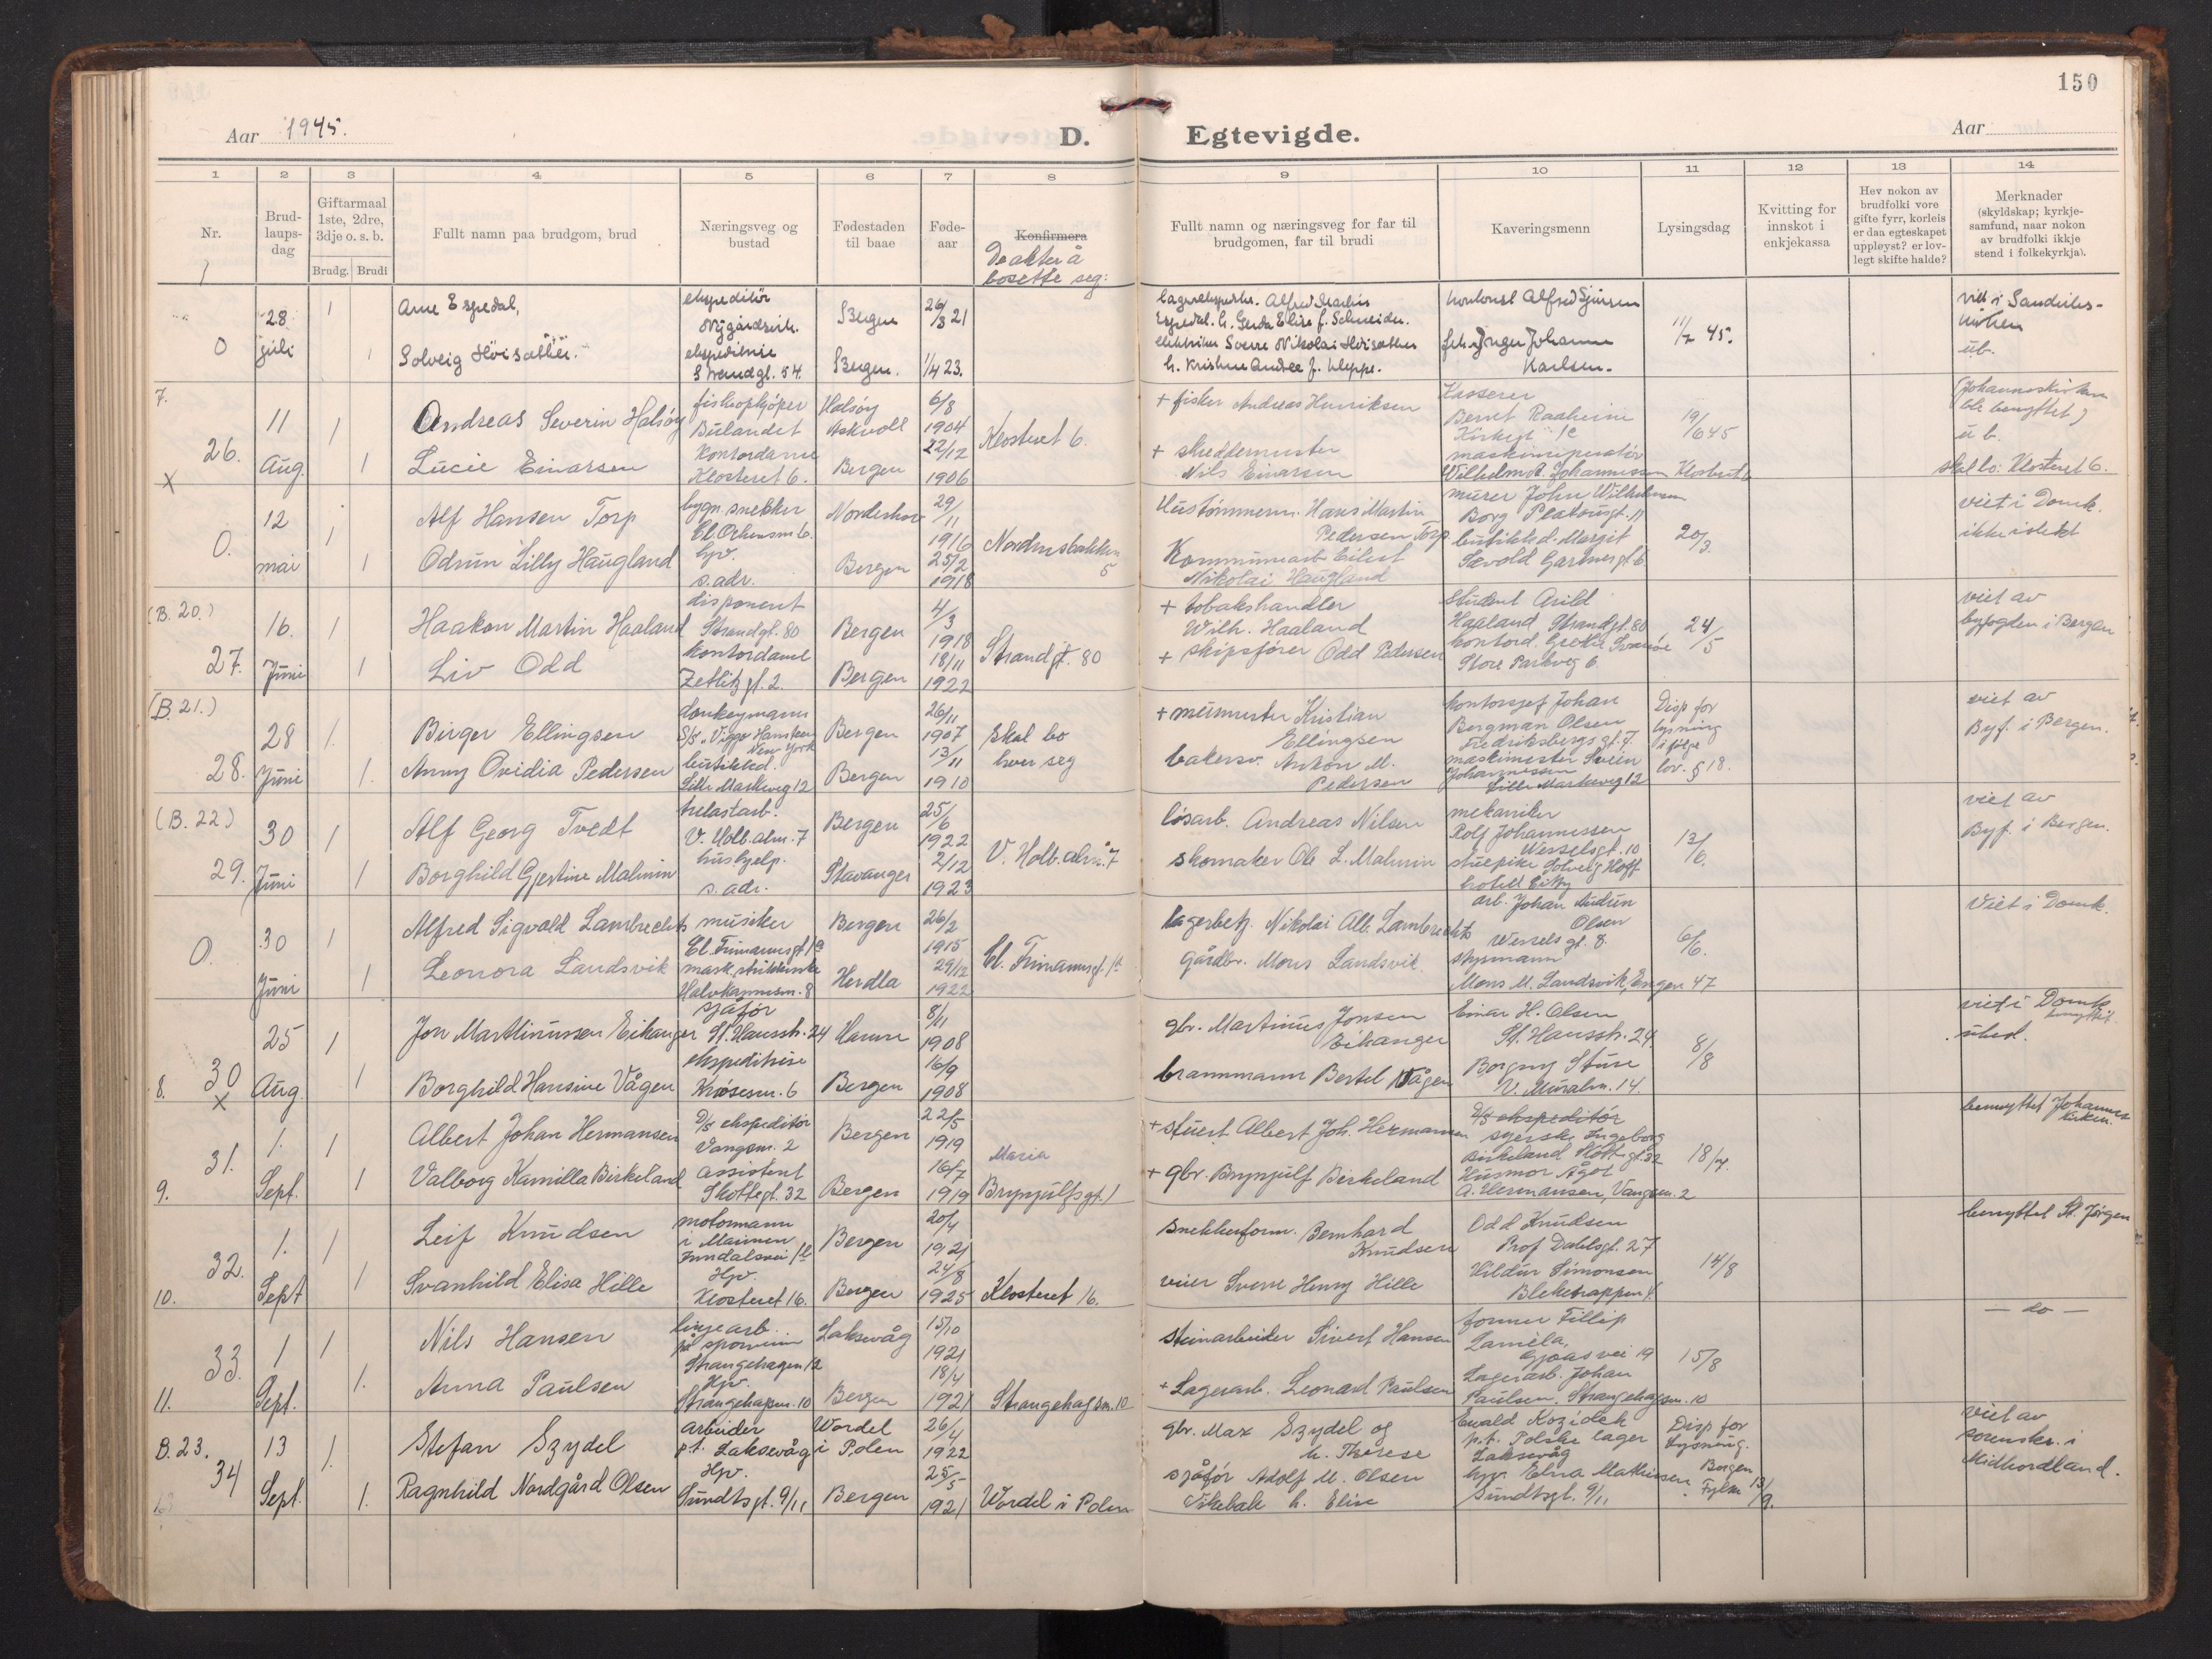 150
Aar 1945.
D. Egtevigde.
Aar
1 2 3 4 5 6 7 8 9 10 11 12 13 14
Nr.
Brudlaupsdag
Giftarmaal 1ste, 2dre, 3dje o. s. b.
Brudg. Brudi
Fullt namn paa brudgom, brud
Næringsveg og bustad
Fødestaden til baae
Føde-aar
Konfirmera
De akter å bosette seg:
Fullt namn og næringsveg for far til brudgomen, far til brudi
Kaveringsmenn
Lysingsdag
Kvitting for innskot i enkjekassa
Hev nokon av brudfolki vore gifte fyrr, korleis er daa egteskapet uppløyst? er lovlegt skifte halde?
Merknader (skyldskap; kyrkjesamfund, naar nokon av brudfolki ikkje stend i folkekyrkja).
0 28 juli 1 Arne Espedal, ekspeditör Bergen 26/3 21
1 Solveig Höisæther. ekspeditrise Strandgt. 54. Bergen. 1/4 23.
Alfred Espedal. h. Gerda Elise f. Schneider.
Sverre Nikolai Höisæther h. Kristine Andrea f. Kleppe.
Alfred Sjursen
Inger Johanne Karlsen.
11/7 45.
viet i u.b.
7. 26. x 11 Aug. 1 Andreas Severin Halsøy fiskeopkjøper Bulandet Halsøy Askvoll 6/8 1904
1 Lucie Einarsen Kontordame Klosteret 6. Bergen 22/12 1906
Klosteret 6.
+ fisker Andreas Henriksen
+ skreddermester Nils Einarsen
Kasserer Bernt Raaheim
maskinreparatør Wilhelm A. Johannessen Klosteret 6
19/6 45
(Johanneskirken ble benyttet) u.b.
skal bo: Klosteret 6.
0. 12 mai 1 Alf Hansen Torp bygn. snekker Norderhov 29/11 1916
1 Odrun Lilly Haugland hjv. s. adr. Bergen 25/2 1918
5
Hustømmerm. Hans Martin Pedersen Torp
Kommunearb. Eilert Nikolai Haugland
murer John Wilhelmsen Borg Platousgt. 11
butikkd. Margit Sævold Gartnergt. 6.
20/3.
viet i Domk. ikke i slekt
(B. 20.) 27. 16. Juni 1 Haakon Martin Haaland disponent Strandgt. 80 Bergen 4/3 1918
1 Liv Odd kontordame Zetlitzgt. 2. Bergen 18/11 1922
Strandgt. 80
+ tobakshandler Wilh. Haaland
+ skipsfører Odd Pedersen
Student Arild Haaland Strandgt. 80
kontord. Grethe Svanøe Store Parkveg 6.
24/5
viet av byfogden i Bergen
(B. 21.) 28. 28 Juni 1. Birger Ellingsen donkeymann S/S "Viggo Hansteen" New York Bergen 26/11 1907
1. Anny Ovidia Pedersen butikkd. Lille Markeveg 12 Bergen 13/11 1910
skal bo hver seg
+ murmester Kristian Ellingsen
bakersv. Anton M. Pedersen
kontorsjef Johan Bergman Olsen Fredriksbergsgt. 7.
maskinmester Svein Johannessen Lille Markeveg 12
Disp for lysning i følge lov. § 18.
viet av Byf. i Bergen.
(B. 22.) 29. 30 Juni 1 Alf Georg Tvedt trelastarb. V. Holb. alm. 7 Bergen 25/6 1922
1 Borghild Gjertine Malmin hushjelp. s. adr. Stavanger 2/12 1923
V. Holb. alm. 7
løsarb. Andreas Nilsen
skomaker Ole L. Malmin
mekaniker Rolf Johannessen Wesselsgt. 10
stuepike Solveig Hoff hotell City
13/6.
viet av Byf. i Bergen.
0. 30 Juni 1 Alfred Sigvald Lambrechts musiker Bergen 26/2 1915
1 Leonora Landsvik Herdla 29/12 1922
lagerbetj. Nikolai Alb. Lambrechts
gårdbr. Mons Landsvik.
arb. Johan Andrin Olsen Wesselsgt. 8.
styrmann Mons M. Landsvik, Engen 47
6/6.
Viet i Domk.
8. 30 x 25 Aug. 1 Jon Martinussen Eikanger sjåfør St. Hansstr. 24 Hamre 8/11 1908
1 Borghild Hansine Vågen ekspeditrise Krøsesm. 6 Bergen 16/9 1908
gbr. Martinus Jonsen Eikanger
brannmann Bertel Vågen
Einar H. Olsen St. Hansstr. 24.
Borgny Sture V. Muralm. 14.
8/8
viet i Domk. benyttet.
9. 31. 1. Sept. 1 Albert Johan Hermansen D/S ekspeditör Vangsm. 2 Bergen 22/5 1919
1 Valborg Kamilla Birkeland assistent Skottegt. 32 Bergen 16/7 1919
Maria Brynjulfsgt. 1
+ stuert Albert Joh. Hermansen
+ gbr. Brynjulf Birkeland
D/S ekspeditör
syerske Ingeborg Birkeland Skottgt. 32
Husmor Ågot A. Hermansen, Vangsm. 2
18/7.
benyttet Johanneskirken.
10. 32. 1. Sept 1 Leif Knudsen motormann i Marinen Bergen 20/4 1921
1 Svanhild Elisa Hille Hjv. Klosteret 16. Bergen 24/8 1925
Klosteret 16.
snekkerform. Bernhard Knudsen
veier Sverre Henry Hille
Odd Knudsen Prof Dahlsgt. 27
Vildur Simonsen
14/8
benyttet St. Jørgen
11. 33. 1 Sept. 1 Nils Hansen linjearb. på sporveien Strangehagen 12 Laksevåg 15/10 1921
1. Anna Paulsen Hjv. Strangehagen. 10 Bergen 18/4 1921
Strangehagen. 10
steinarbeider Sivert Hansen
+ Lagerarb. Leonard Paulsen
former Fillip Lamela, Gjøasvei 19
Lagerarb. Johan Paulsen. Strangehagen. 10
15/8
— do —
B. 23. 34 13 Sept. 1. Stefan Szydel arbeider p.t. Laksevåg Wordel i Polen 26/4 1922
1. Ragnhild Nordgård Olsen Hjv. Sundtsgt. 9/11 Bergen 25/5 1921
Wordel i Polen
gbr. Max Szydel og h. Therese
sjåfør Adolf M. Olsen Vikebak h. Elise
Ewald Kozidek p.t. Polske lager Laksevåg
hjv. Elna Mathiesen Sundtsgt. 9/11
Disp for Lysning. Bergen Fylke 13/9.
viet av sorenskr. i Midhordland.